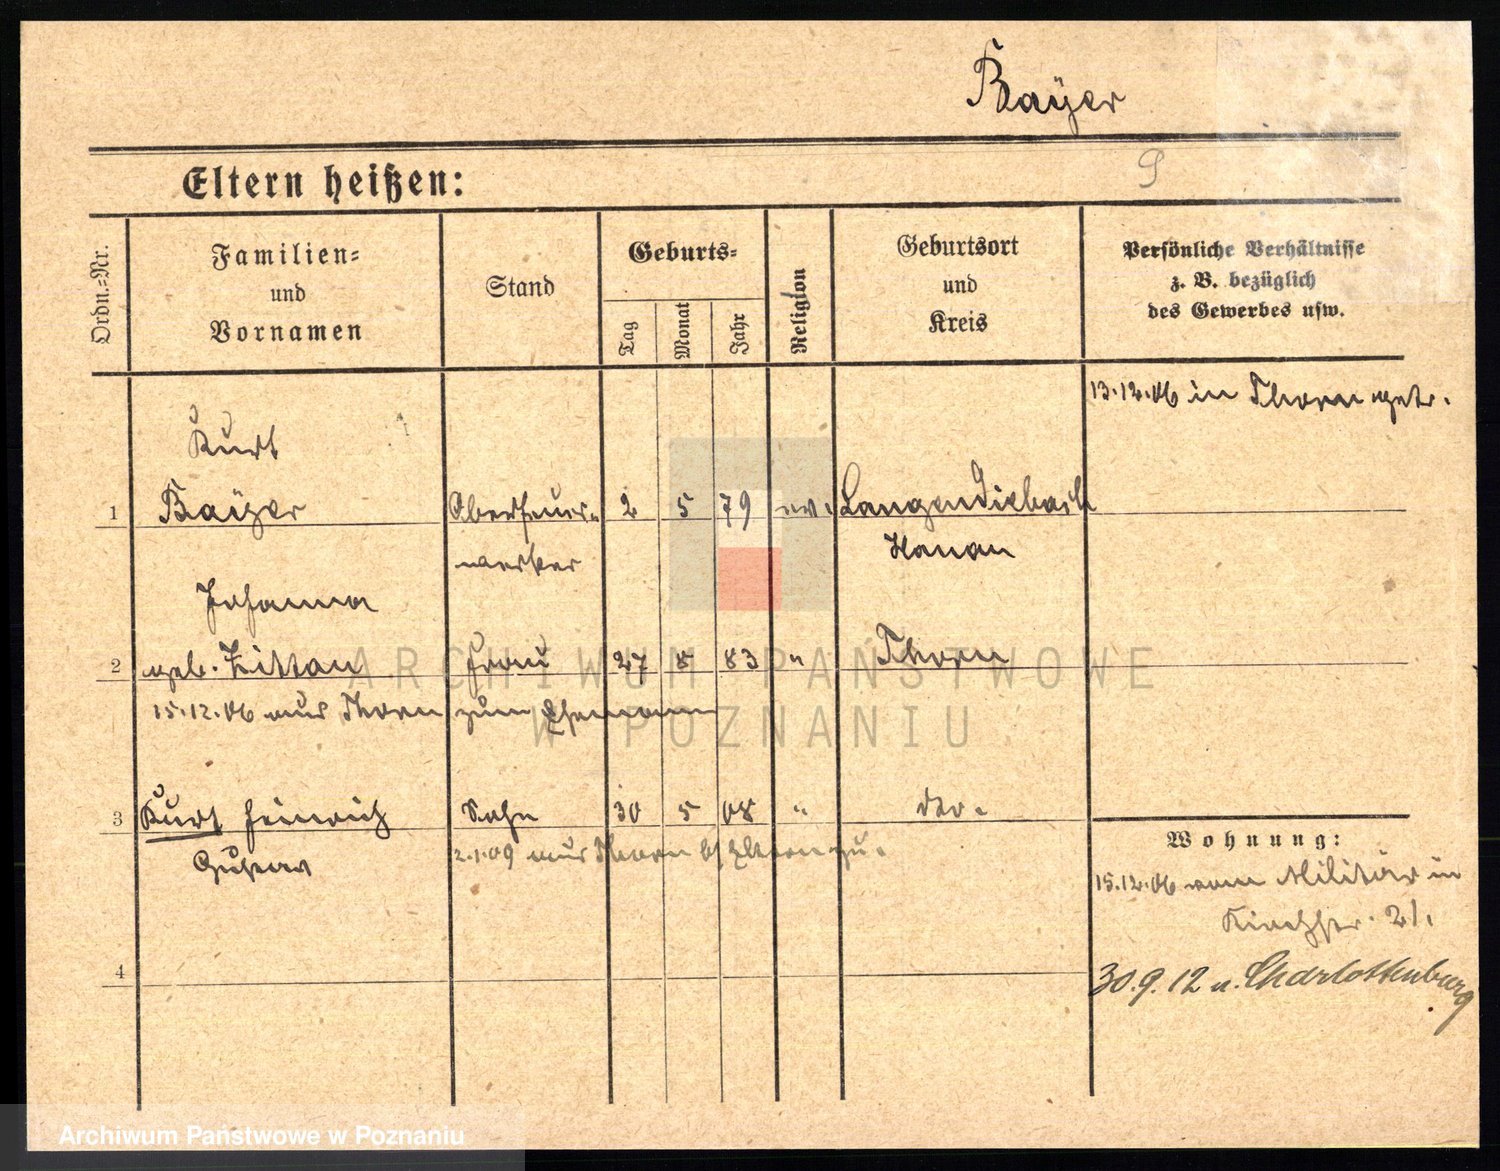 Bayer
Eltern heißen:
Ordn.-Nr.
Familien-
und
Vornamen
Stand
Geburts-
Tag
Monat
Jahr
Religion
Geburtsort
und
Kreis
Persönliche Verhältnisse
z. B. bezüglich
des Gewerbes usw.
13.12.06 in Thorn getr.
Kurt
1 Bayer Oberfeuer- 2 5 79 ev. Langendiebach
werker Hanau
Johanna
2 geb. Zittlau Frau 27 8 83 " Thorn
15.12.06 aus Thorn zum Ehemann
3 Kurt Heinrich Sohn 30 5 08 " dto.
Gustav 2.1.09 aus Thorn b/ Eltern zu.
Wohnung:
15.12.06 vom Militär in
Kirchstr. 21.
4
30.9.12 n. Charlottenburg
ARCHIWUM PAŃSTWOWE
W POZNANIU
Archiwum Państwowe w Poznaniu